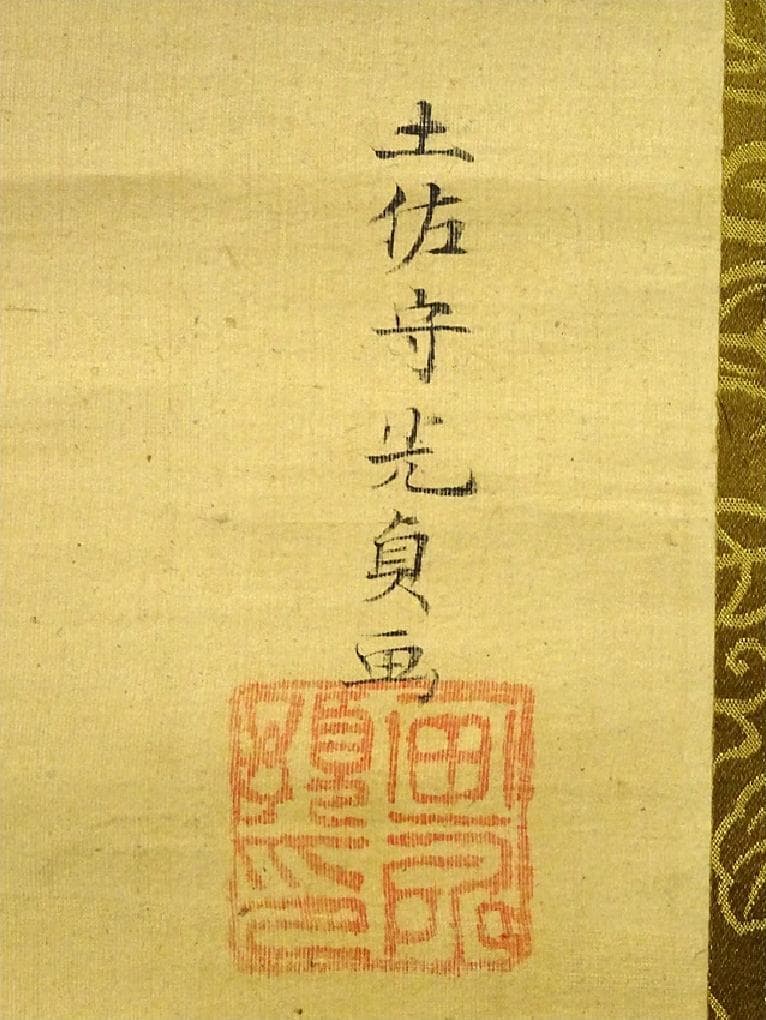 土佐守光貞画